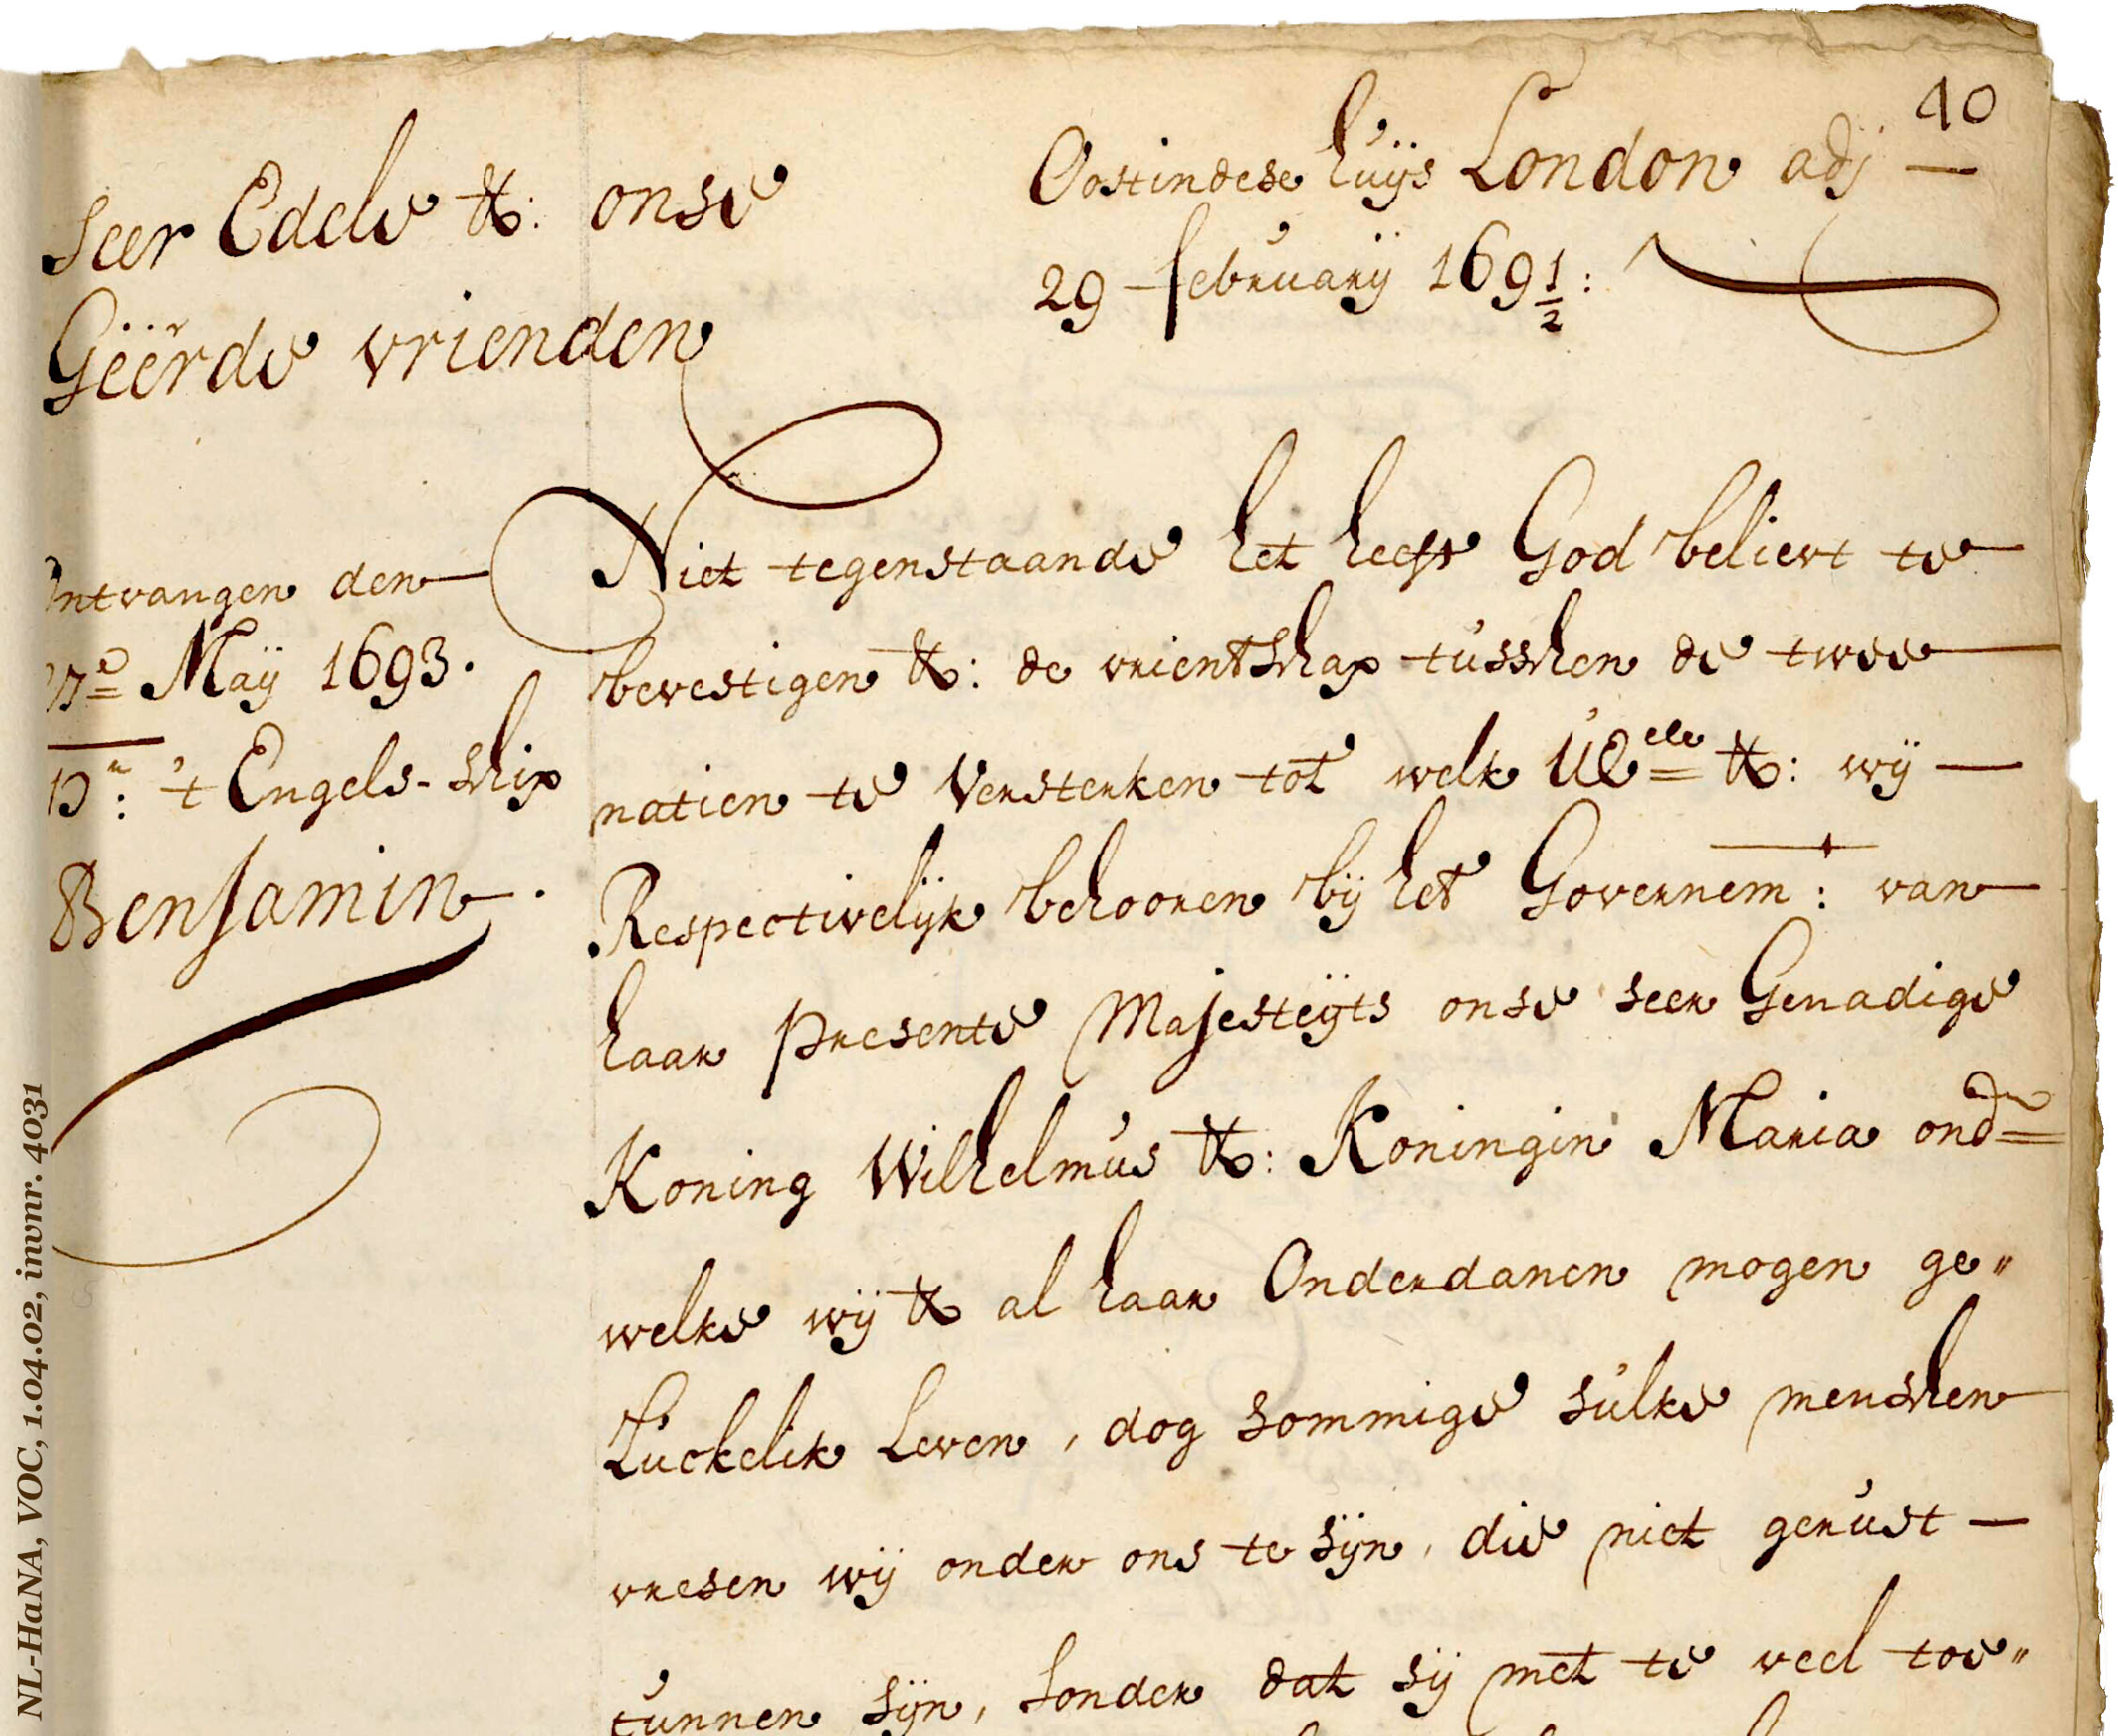 40
Oostindese huijs London adj —
29 februarij 169½:
Seer Edele &: onse
Geëerde vrienden
Niet tegenstaande het heeft God belieft te
bevestigen &: de vrientschap tusschen de twee
natien te Versterken tot welk UEele &: wij —
Respectivelijk behooren bij het Governem: van
haar presente Majesteijts onse seer Genadige
Koning Wilhelmus &: Koningin Maria ond=
welke wij & al haar Onderdanen mogen ge"
Luckelik Leven, dog sommige sulke menschen
vresen wij onder ons te sijn, die niet gerust —
cunnen sijn, sonder dat sij met te veel toe"
Ontvangen den
Maij 1693.
pr: 't Engels-schip
Benjamin.
NL-HaNA, VOC, 1.04.02, invnr. 4031